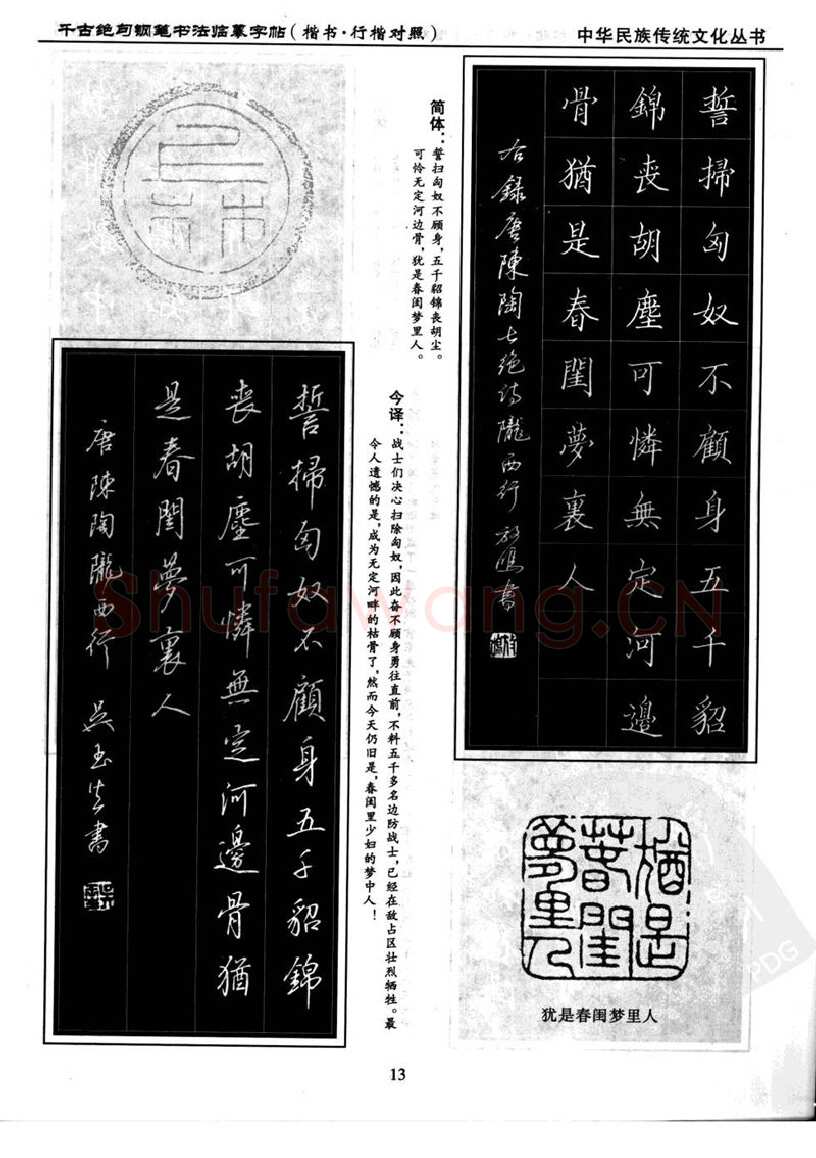 千古绝句钢笔书法临摹字帖(楷书·行楷对照)
中华民族传统文化丛书
誓掃匈奴不顧身五千貂
錦喪胡塵可憐無定河邊
骨猶是春閨夢裏人
右録唐陳陶七绝诗隴西行
简体：誓扫匈奴不顾身，五千貂錦丧胡尘。
可怜无定河边骨，犹是春闺梦里人。
今译：战士们决心扫除匈奴，因此奋不顾身勇往直前，不料五千多名边防战士，已经在敌占区壮烈牺牲。最
令人遗憾的是，成为无定河畔的枯骨了，然而今天仍旧是，春闺里少妇的梦中人！
誓掃匈奴不顧身五千貂錦
喪胡塵可憐無定河邊骨猶
是春閨夢裏人
唐陳陶隴西行
猶是
春閨
夢里人
犹是春闺梦里人
13
Shufawang.CN
PDG